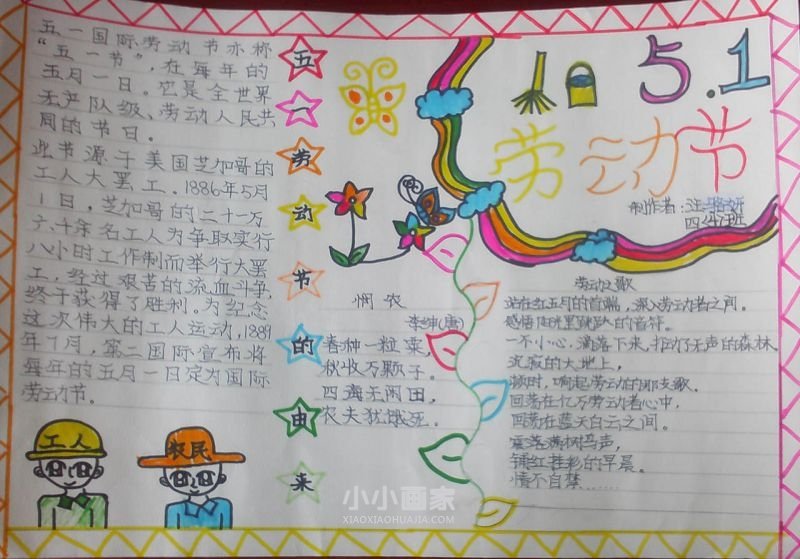 五一国际劳动节亦称
“五一节”，在每年的
五月一日。它是全世界
无产队级、劳动人民共
同的节日。
此节源于美国芝加哥的
工人大罢工。1886年5月
1日，芝加哥的二十一万
六千年名工人为争取实行
八小时工作制而举行大罢
工，经过艰苦的流血斗争，
终于获得了胜利。为纪念
这次伟大的工人运动，1889
年7月，第二国际宣布将
每年的五月一日定为国际
劳动节。
五一劳动节的由来
工人
农民
5.1
劳动节
制作者：汪
四（4）班
悯农
李绅（唐）
春种一粒粟，
秋收万颗子。
四海无闲田，
农夫犹饿死。
劳动之歌
站在红五月的首端，深入劳动者之间。
感悟阳光里跳跃的音符。
一不小心，滴落下来，推动无声的森林
沉寂的大地上，
顿时，响起劳动的那支歌。
回荡在亿万劳动者心中，
回荡在蓝天白云之间。
震落满树鸟声，
铺红挂彩的早晨。
情不自禁……
小小画家
XIAOXIAOHUAJIA.COM